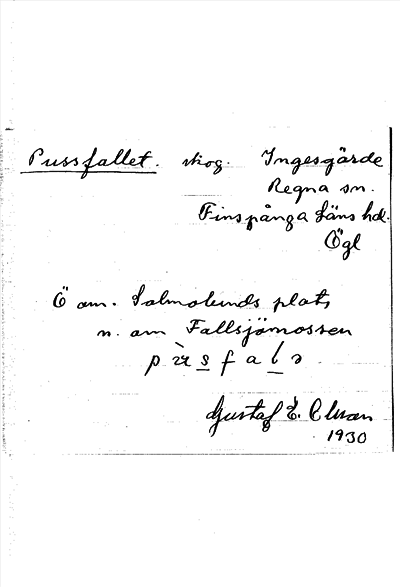 Pussfallet. skog. Ingesgärde
Regna sn.
Finspånga läns hd.
Ögl
Ö om. Salmolunds plats,
n. om Fallsjömossen
pùsfalə
Gustaf E.
1930